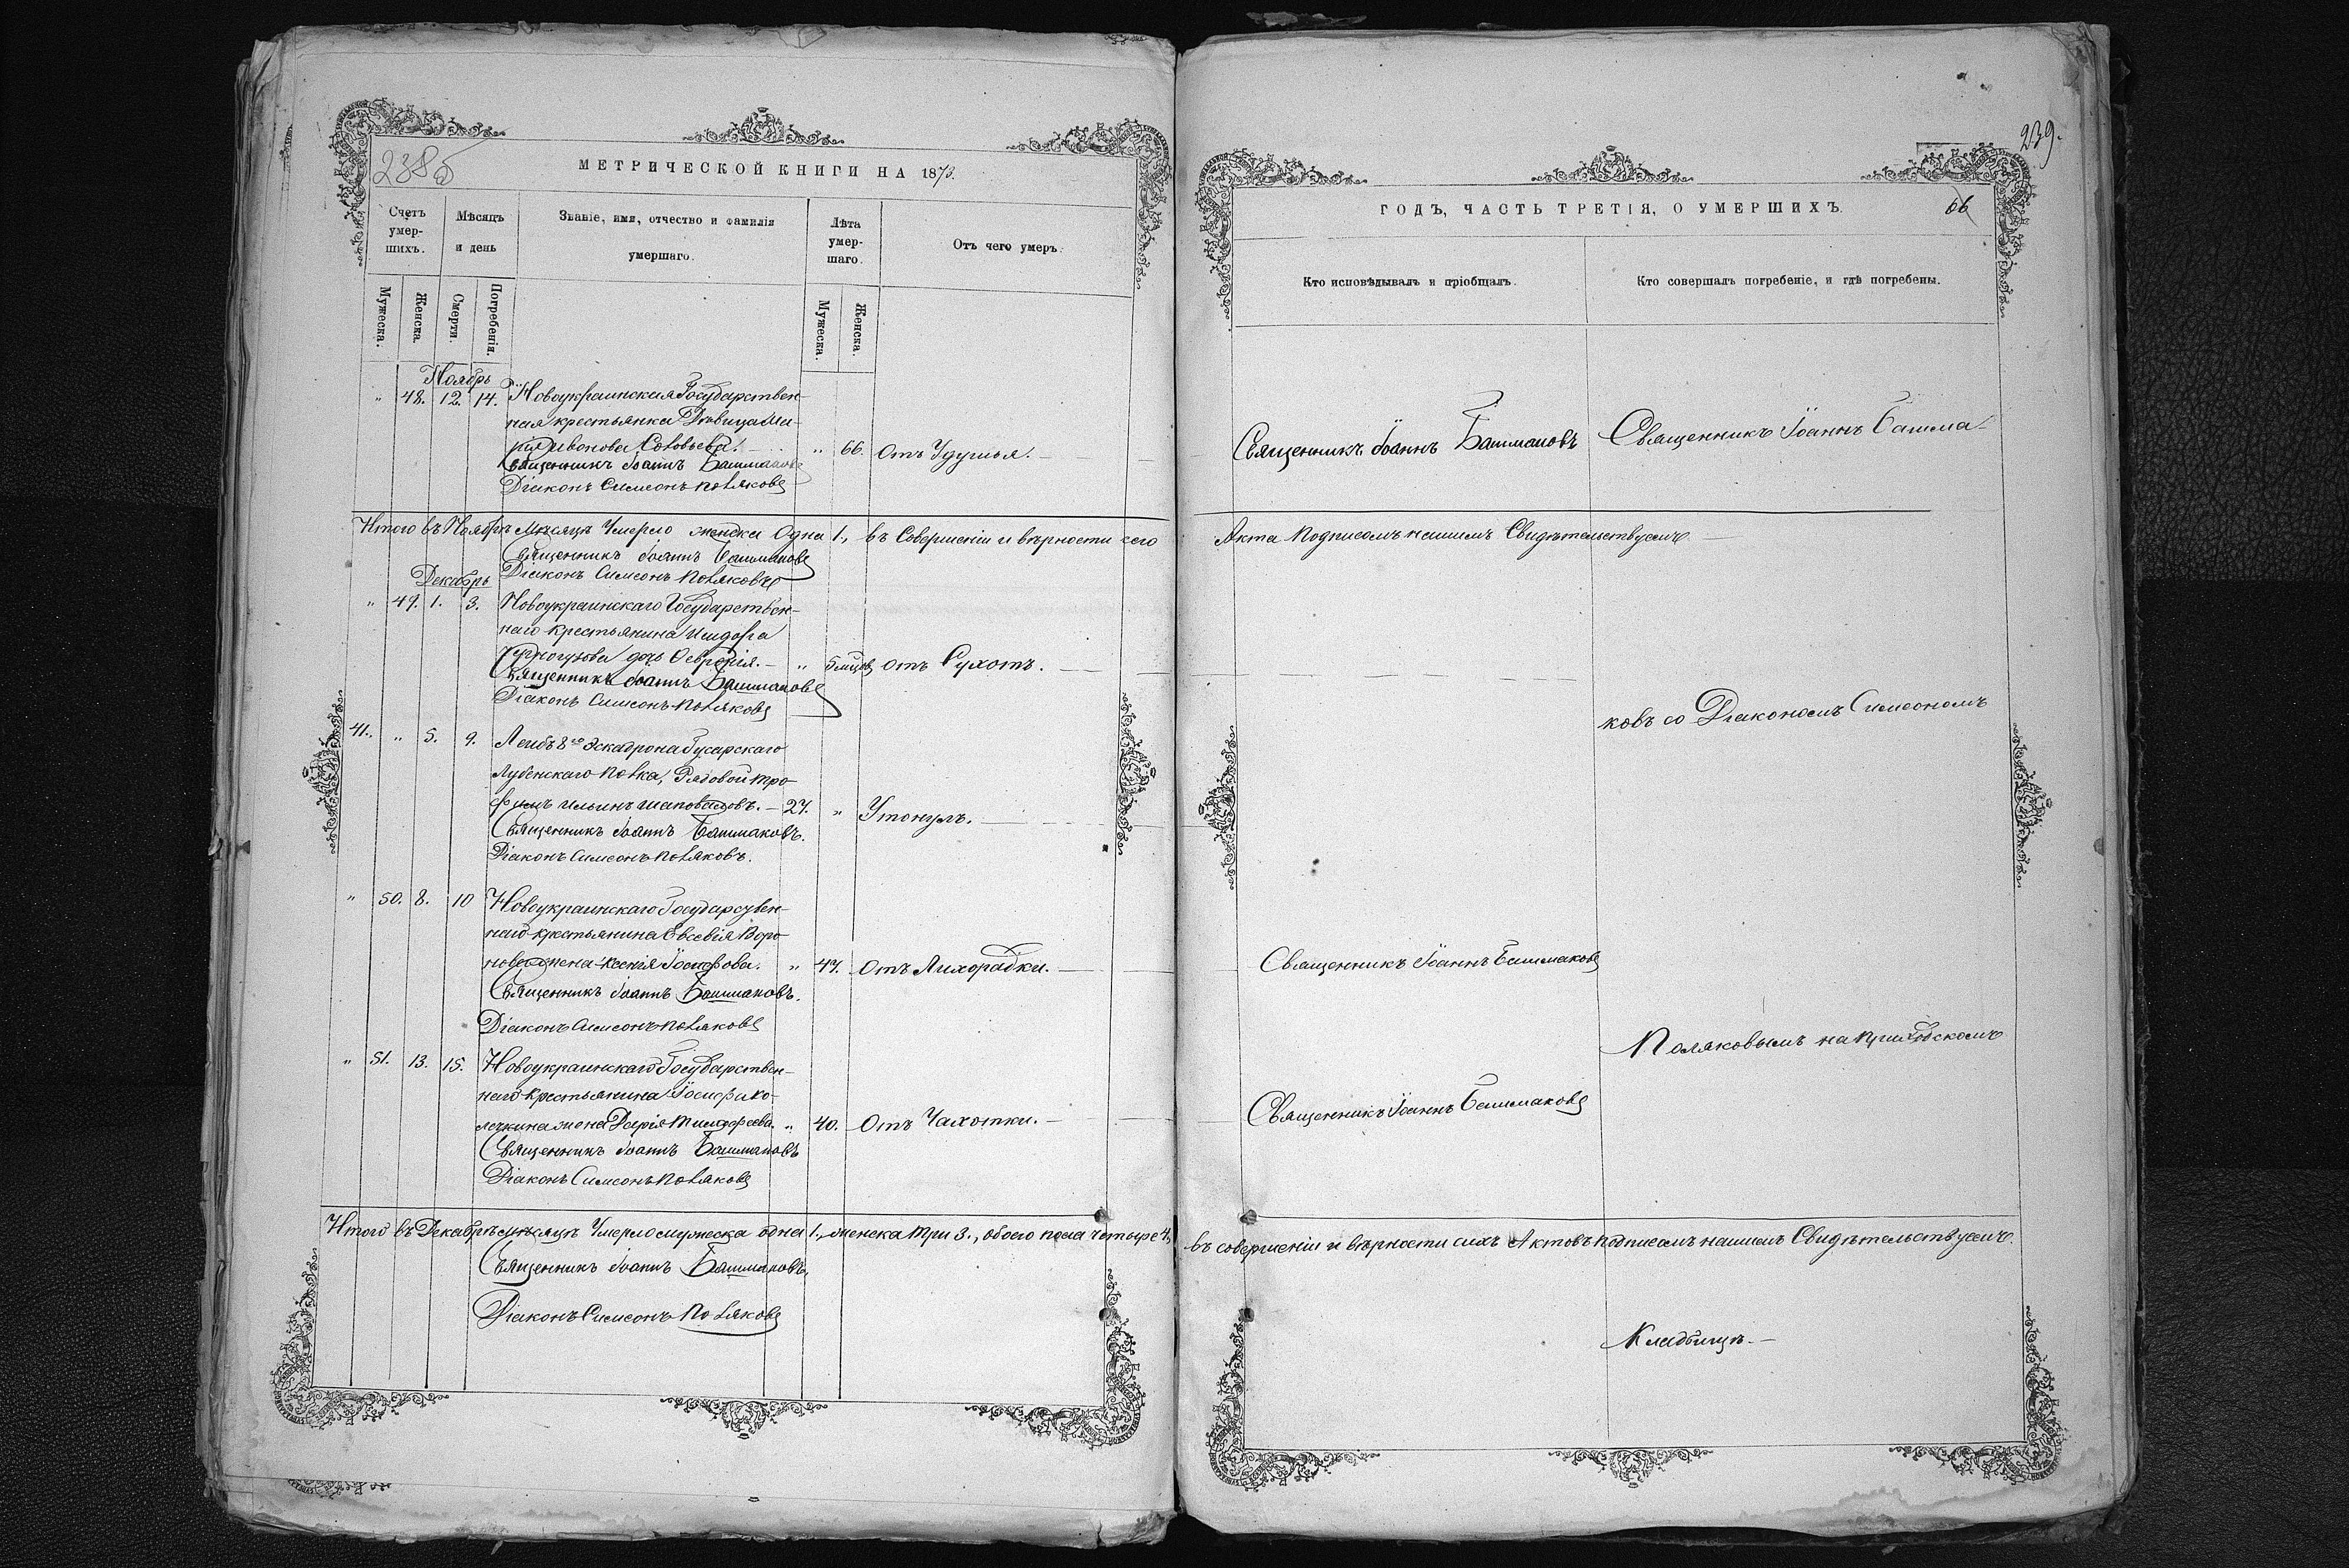 238б
МЕТРИЧЕСКОЙ КНИГИ НА 1873.
Счетъ умер-шихъ.
Мѣсяцъ и день
Званіе, имя, отчество и фамилія умершаго.
Лѣта умер-шаго.
Отъ чего умеръ.
Мужеска.
Женска.
Смерти.
Погребенія.
Мужеска.
Женска.
Ноябрь
" 48. 12. 14. Новоукраинская Государствен-
ная крестьянка Дѣвица Ма-
рія Иванова Соловьева. " 66. Отъ Удушья.
Священникъ Іоаннъ Башмаковъ
Діаконъ Симеонъ Поляковъ
Итого въ Ноябрѣ Мѣсяцѣ Умерло женска Одна 1., въ Совершеніи и вѣрности сего
Священникъ Іоаннъ Башмаковъ
Діаконъ Симеонъ Поляковъ
Декабрь
" 49. 1. 3. Новоукраинскаго Государствен-
наго крестьянина Исидора
дочь Февронія. " 5 мцов отъ Сухотъ.
Священникъ Іоаннъ Башмаковъ
Діаконъ Симеонъ Поляковъ
41. " 5. 9. Лейбъ 8го Эскадрона Гусарскаго
Лубенскаго Полка, Рядовой Тро-
фимъ Ильинъ Шаповаловъ. 27. " Утонулъ.
Священникъ Іоаннъ Башмаковъ.
Діаконъ Симеонъ Поляковъ.
" 50. 8. 10 Новоукраинскаго Государствен-
наго крестьянина Евсевія Воро-
нова жена Ксенія Іосифова. " 47. Отъ Лихорадки.
Священникъ Іоаннъ Башмаковъ.
Діаконъ Симеонъ Поляковъ
" 51. 13. 15. Новоукраинскаго Государствен-
наго Крестьянина Іосифа Ко-
лечкина жена Дарія Тимофеева. " 40. Отъ Чахотки.
Священникъ Іоаннъ Башмаковъ
Діаконъ Симеонъ Поляковъ
Итого въ Декабрѣ мѣсяцѣ Умерло мужеска одна 1., женска три 3., обоего пола четыре 4,
Священникъ Іоаннъ Башмаковъ,
Діаконъ Симеонъ Поляковъ
239.
ГОДЪ, ЧАСТЬ ТРЕТІЯ, О УМЕРШИХЪ.
66
Кто исповѣдывалъ и пріобщалъ.
Кто совершалъ погребеніе, и гдѣ погребены.
Священникъ Іоаннъ Башмаковъ
Священникъ Іоаннъ Башма-
Акта Подписомъ нашимъ Свидѣтельствуемъ
ковъ со Діакономъ Симеономъ
Священникъ Іоаннъ Башмаковъ
Поляковымъ на Приходскомъ
Священникъ Іоаннъ Башмаковъ
въ совершеніи и вѣрности сихъ Актовъ подписомъ нашимъ Свидѣтельствуемъ.
Кладбищѣ.